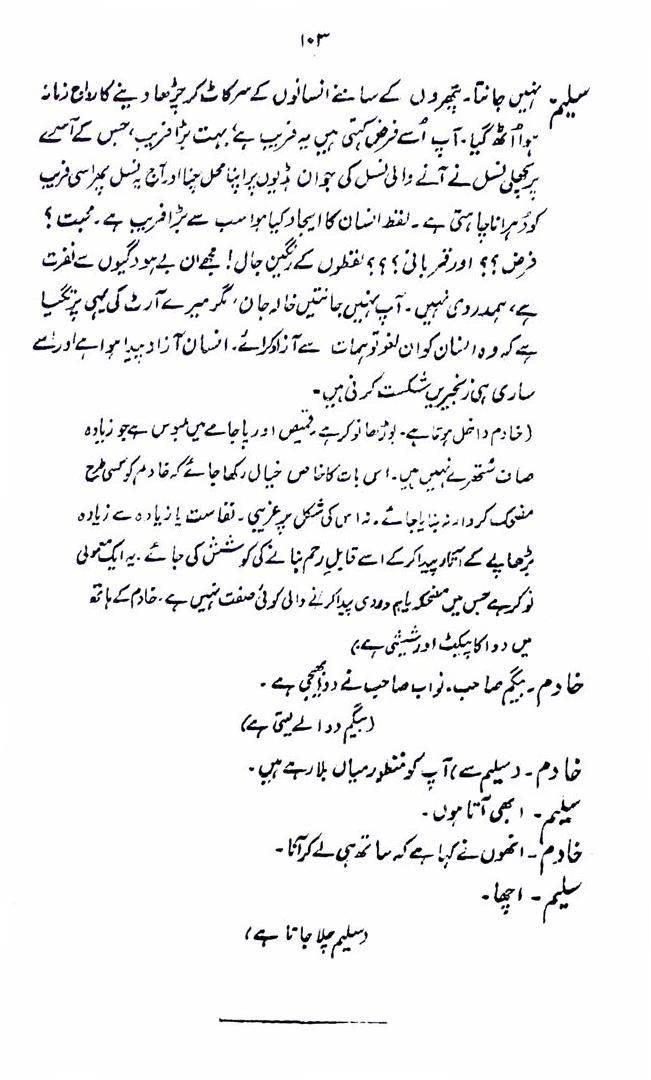 ۱۰۳
سلیم۔ نہیں جانتا۔ پتھروں کے سامنے انسانوں کے سر کاٹ کر چڑھا دینے کا رواج زمانہ
ہوا اُٹھ گیا۔ آپ اُسے فرض کہتی ہیں یہ فریب ہے بہت بڑا فریب، جس کے آسرے
پر پچھلی نسل نے آنے والی نسل کی جوان ہڈیوں پر اپنا محل چنا اور آج یہ نسل پھر اسی فریب
کو دُہرانا چاہتی ہے۔ لفظ انسان کا ایجاد کیا ہوا سب سے بڑا فریب ہے۔ محبت؟
فرض؟؟ اور قربانی؟؟؟ لفظوں کے رنگین جال! مجھے ان بے ہودگیوں سے نفرت
ہے، ہمدردی نہیں۔ آپ نہیں جانتیں خالہ جان، مگر میرے آرٹ کی یہی پرتگیا
ہے کہ وہ انسان کو ان لغو توہمات سے آزاد کرائے۔ انسان آزاد پیدا ہوا ہے اور اسے
ساری ہی زنجیریں شکست کرنی ہیں۔
(خادم داخل ہوتا ہے۔ بوڑھا نوکر ہے۔ قمیض اور پاجامے میں ملبوس ہے جو زیادہ
صاف ستھرے نہیں ہیں۔ اس بات کا خاص خیال رکھا جائے کہ خادم کو کسی طرح
مضحک کردار نہ بنایا جائے۔ نہ اس کی شکل پر غریبی۔ نفاست یا زیادہ سے زیادہ
بڑھاپے کے آثار پیدا کر کے اسے قابلِ رحم بنانے کی کوشش کی جائے۔ یہ ایک معمولی
نوکر ہے جس میں مضحکہ یا ہمدردی پیدا کرنے والی کوئی صفت نہیں ہے۔ خادم کے ہاتھ
میں دوا کا پیکیٹ اور شیشی ہے)
خادم۔ بیگم صاحب۔ نواب صاحب نے دوا بھیجی ہے۔
(بیگم دوا لے لیتی ہے)
خادم۔ (سلیم سے) آپ کو منظور میاں بلا رہے ہیں۔
سلیم۔ ابھی آتا ہوں۔
خادم۔ انھوں نے کہا ہے کہ ساتھ ہی لے کر آنا۔
سلیم۔ اچھا۔
(سلیم چلا جاتا ہے)